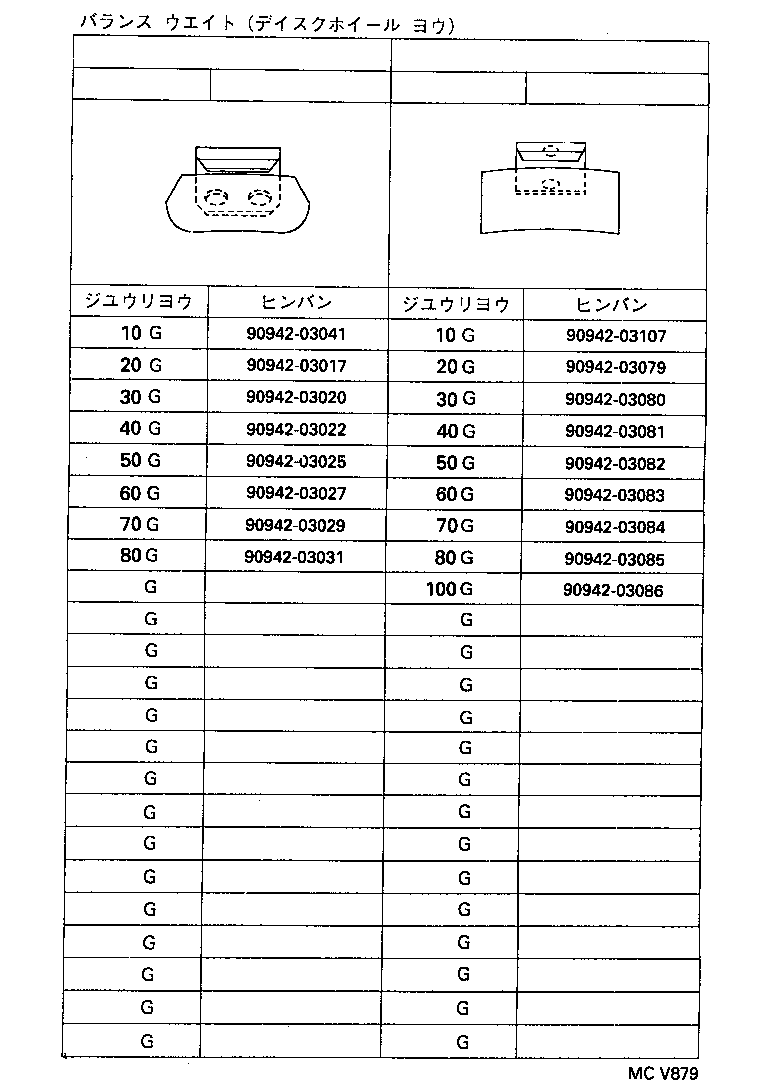 バランス ウエイト (デイスクホイール ヨウ)
ジユウリヨウ ヒンバン ジユウリヨウ ヒンバン
10 G 90942-03041 10 G 90942-03107
20 G 90942-03017 20 G 90942-03079
30 G 90942-03020 30 G 90942-03080
40 G 90942-03022 40 G 90942-03081
50 G 90942-03025 50 G 90942-03082
60 G 90942-03027 60 G 90942-03083
70 G 90942-03029 70 G 90942-03084
80 G 90942-03031 80 G 90942-03085
G 100 G 90942-03086
G G
G G
G G
G G
G G
G G
G G
G G
G G
G G
G G
G G
G G
G G
MC V879